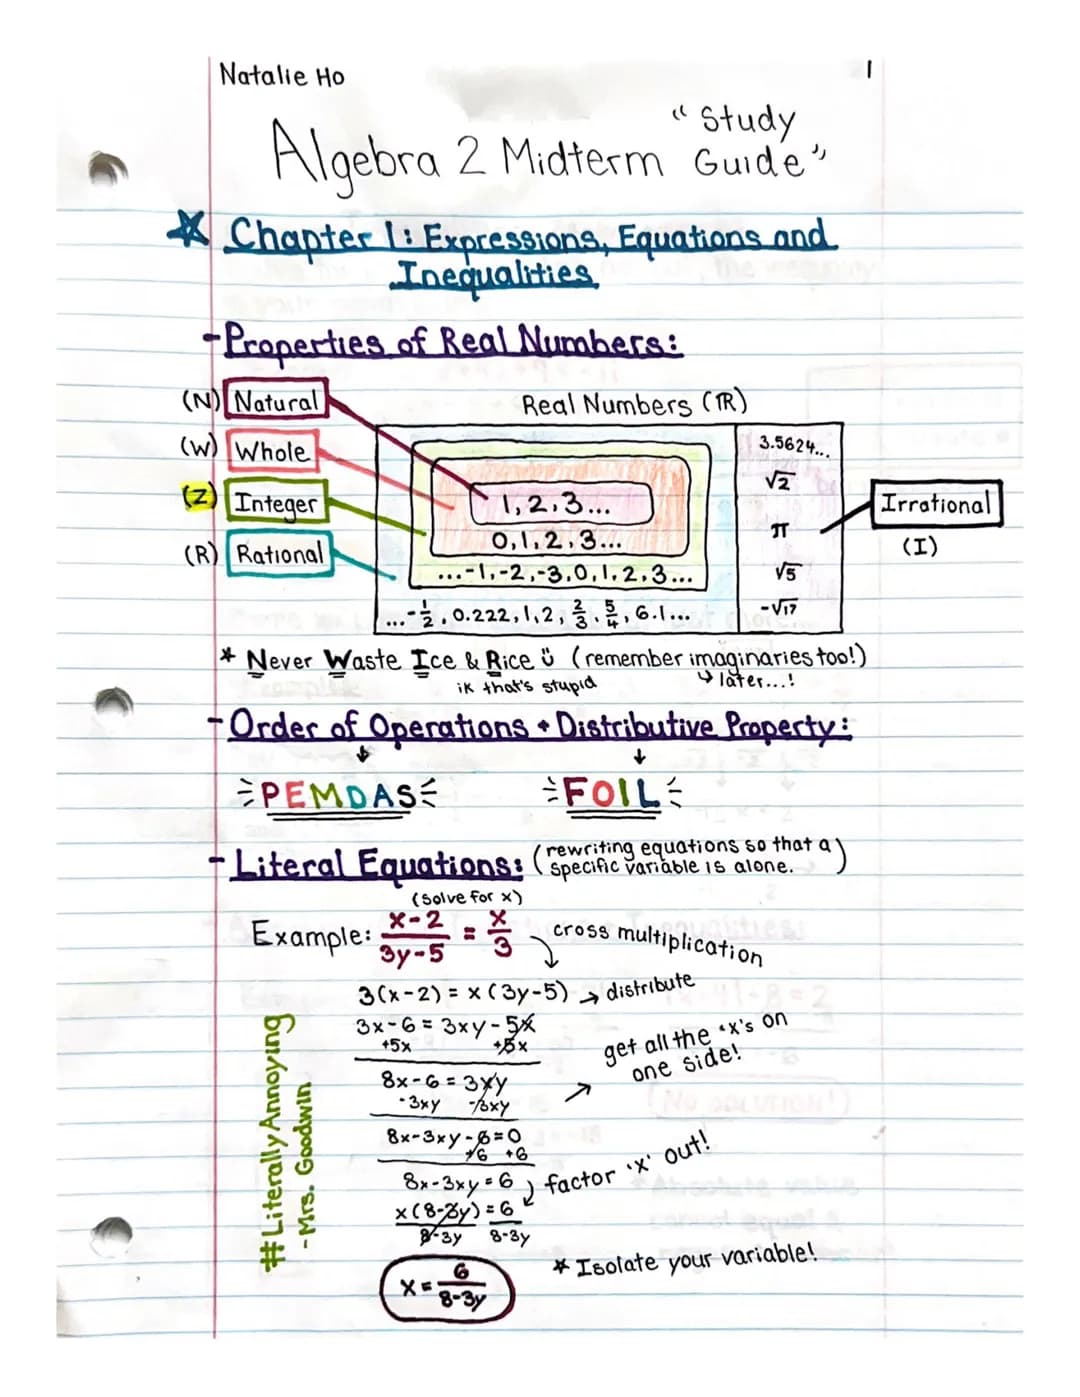 Natalie Ho
1
Algebra 2 Midterm "Study Guide"
☆ Chapter 1: Expressions, Equations and
Inequalities
-Properties of Real Numbers:
(N) Natural
Real Numbers (ℝ)
(W) Whole
(Z) Integer
(R) Rational
1, 2, 3...
0, 1, 2, 3...
...-1, -2, -3, 0, 1, 2, 3...
...-1/2, 0.222, 1, 2, 2/3, 5/4, 6.1...
3.5624...
√2
π
√5
-√17
Irrational
(I)
* Never Waste Ice & Rice ü (remember imaginaries too!)
ik that's stupid
↳ later...!
-Order of Operations + Distributive Property:
↓ ↓
PEMDAS FOIL
-Literal Equations: (rewriting equations so that a
specific variable is alone.)
(solve for x)
Example: x-2/3y-5 = x/3
cross multiplication
3(x-2) = x(3y-5) → distribute
3x-6 = 3xy-5x
+5x +5x
get all the 'x's on
one side!
8x-6 = 3xy
-3xy -3xy
8x-3xy-6=0
+6 +6
8x-3xy=6
factor 'x' out!
x(8-3y)=6
8-3y 8-3y
x = 6/8-3y
* Isolate your variable!
#LiterallyAnnoying
-Mrs. Goodwin